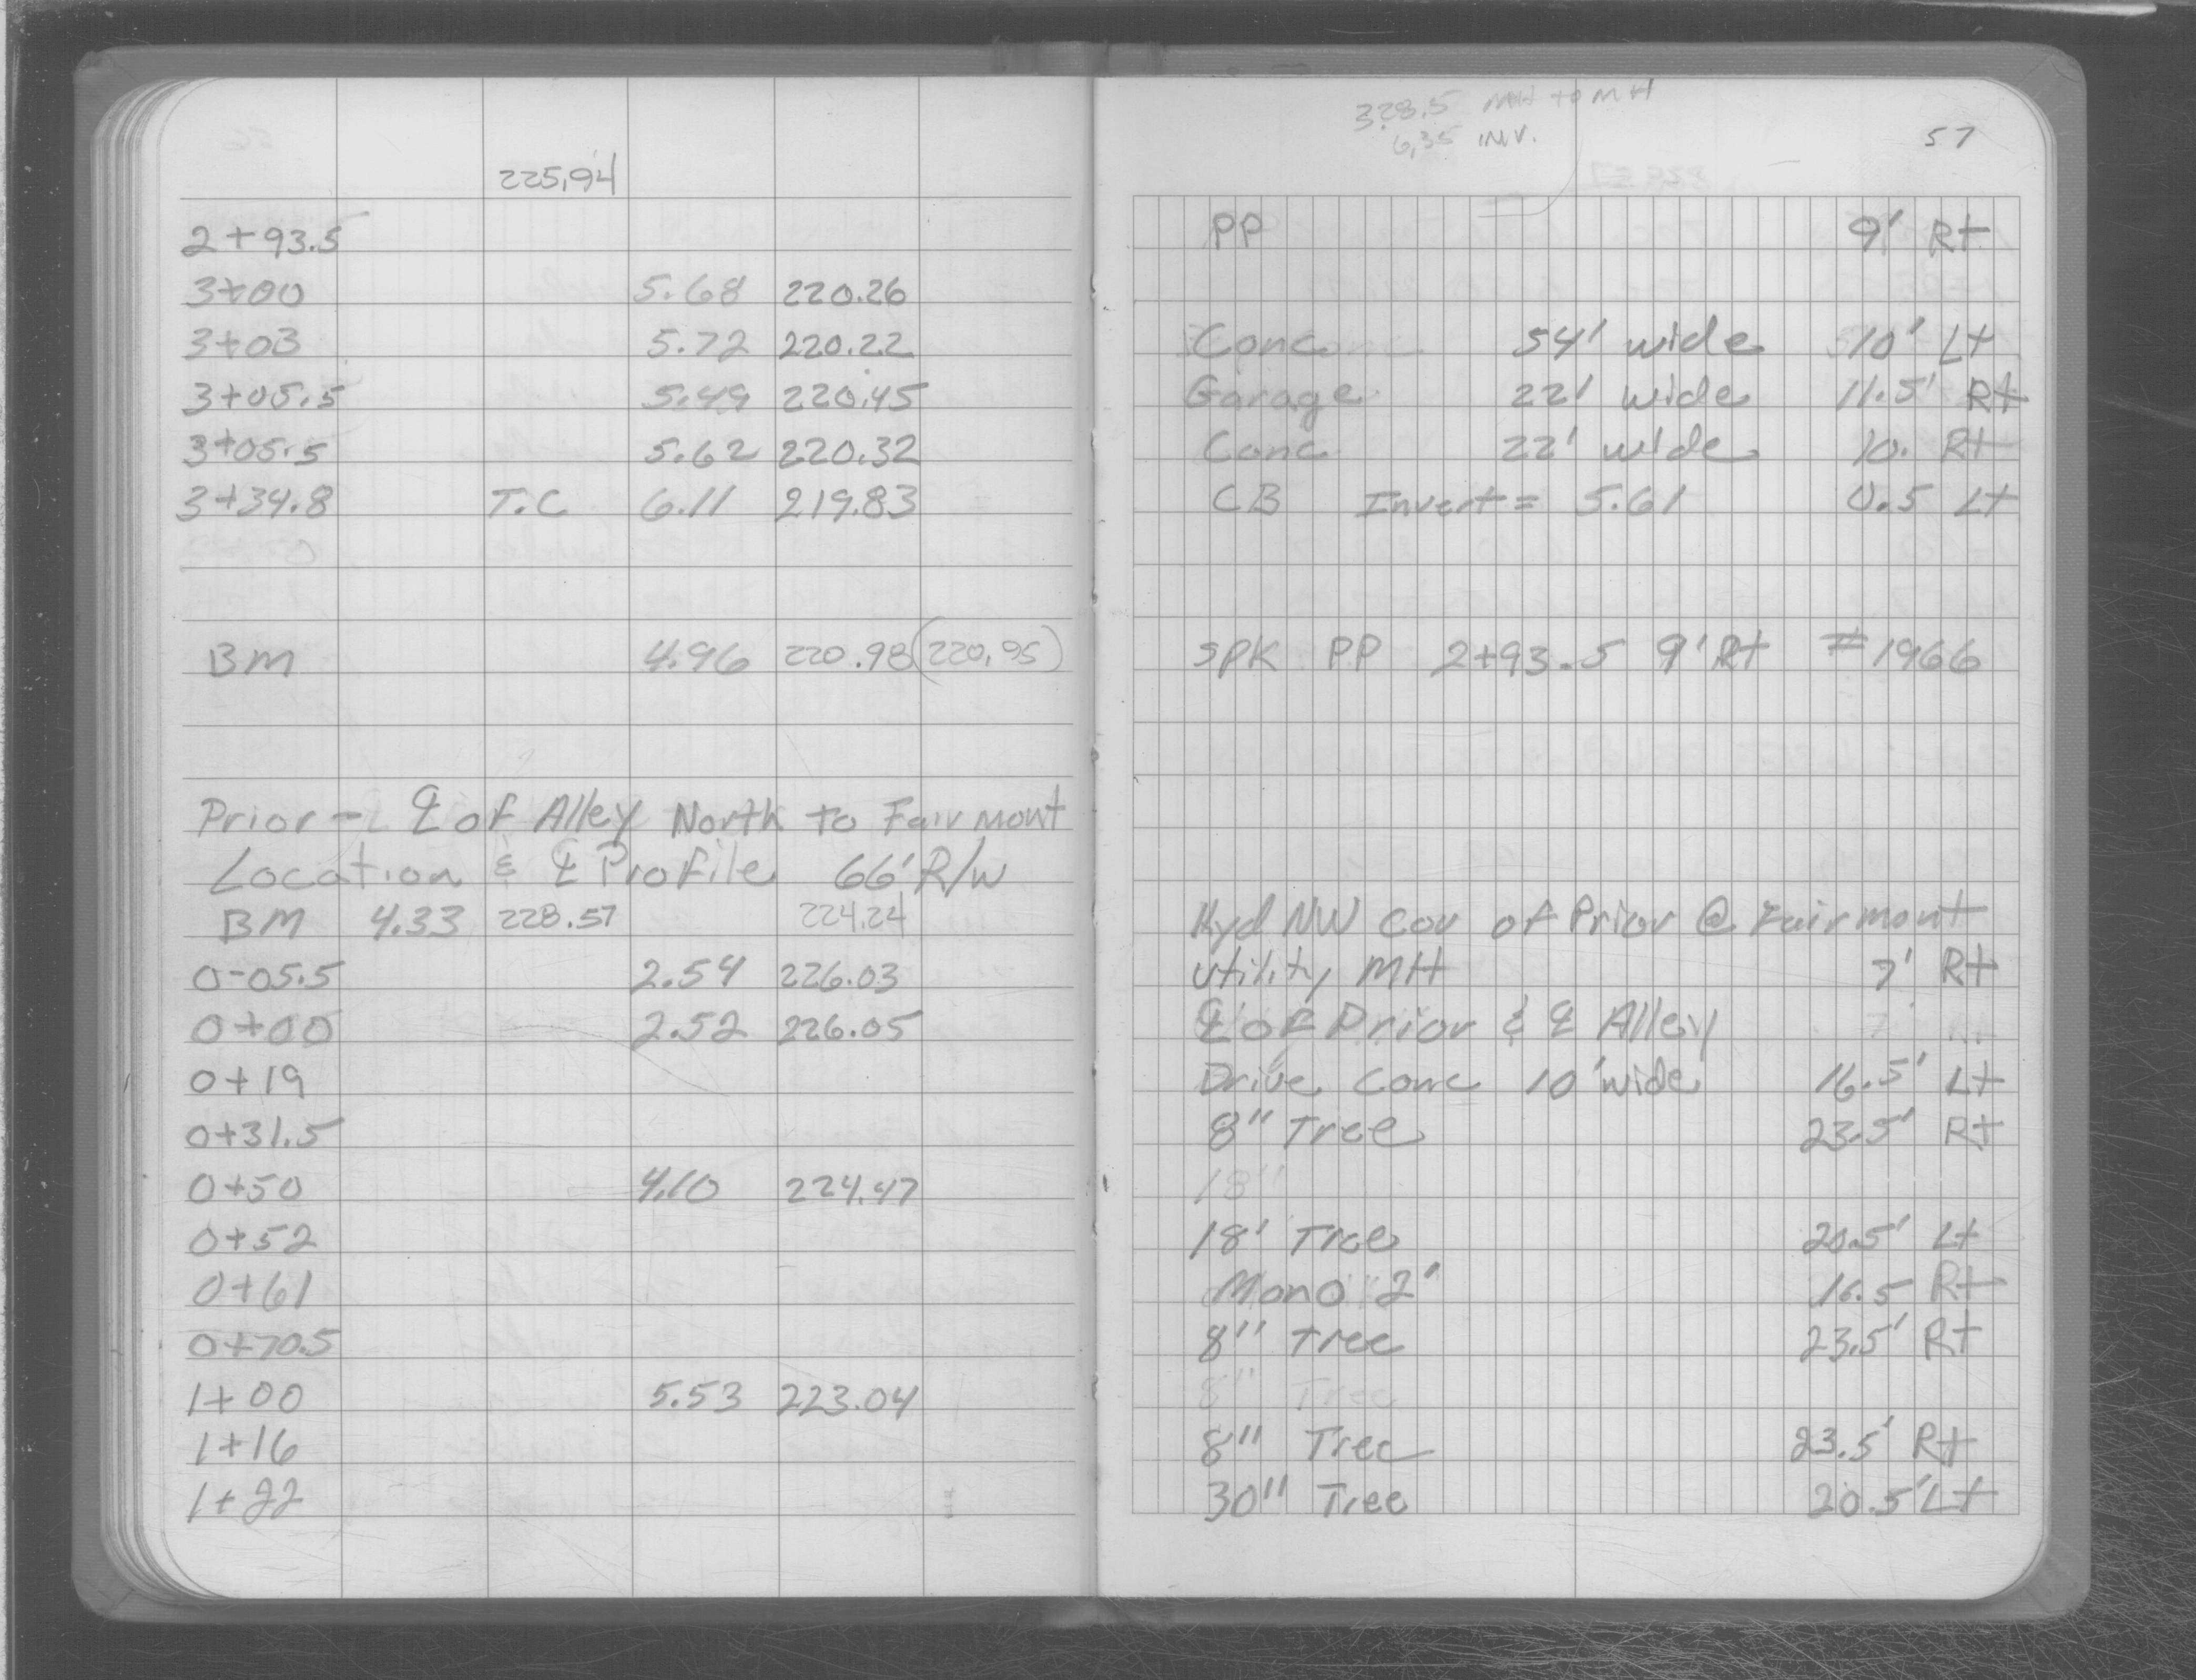 328.5 MH to MH
6.35 INV.
57
225.94
2+93.5 PP 9' Rt
3+00 5.68 220.26
3+03 5.72 220.22 Conc 54' wide 10' Lt
3+05.5 5.49 220.45 Garage 22' wide 11.5' Rt
3+05.5 5.62 220.32 Conc 22' wide 10. Rt
3+34.8 T.C 6.11 219.83 CB Invert = 5.61 0.5 Lt
BM 4.96 220.98 (220.95) SPK PP 2+93.5 9' Rt #1966
Prior - ℄ of Alley North to Fairmont
Location & ℄ Profile 66' R/W
BM 4.33 228.57 224.24 Hyd NW Cor of Prior @ Fairmont
0-05.5 2.54 226.03 Utility MH 7' Rt
0+00 2.52 226.05 ℄ of Prior & ℄ Alley
0+19 Drive Conc 10' wide 16.5' Lt
0+31.5 8" Tree 23.5' Rt
0+50 4.10 224.47 18"
0+52 18' Tree 20.5' Lt
0+61 Mono 2' 16.5 Rt
0+70.5 8" Tree 23.5' Rt
1+00 5.53 223.04 8" Tree
1+16 8" Tree 23.5' Rt
1+22 30" Tree 20.5' Lt